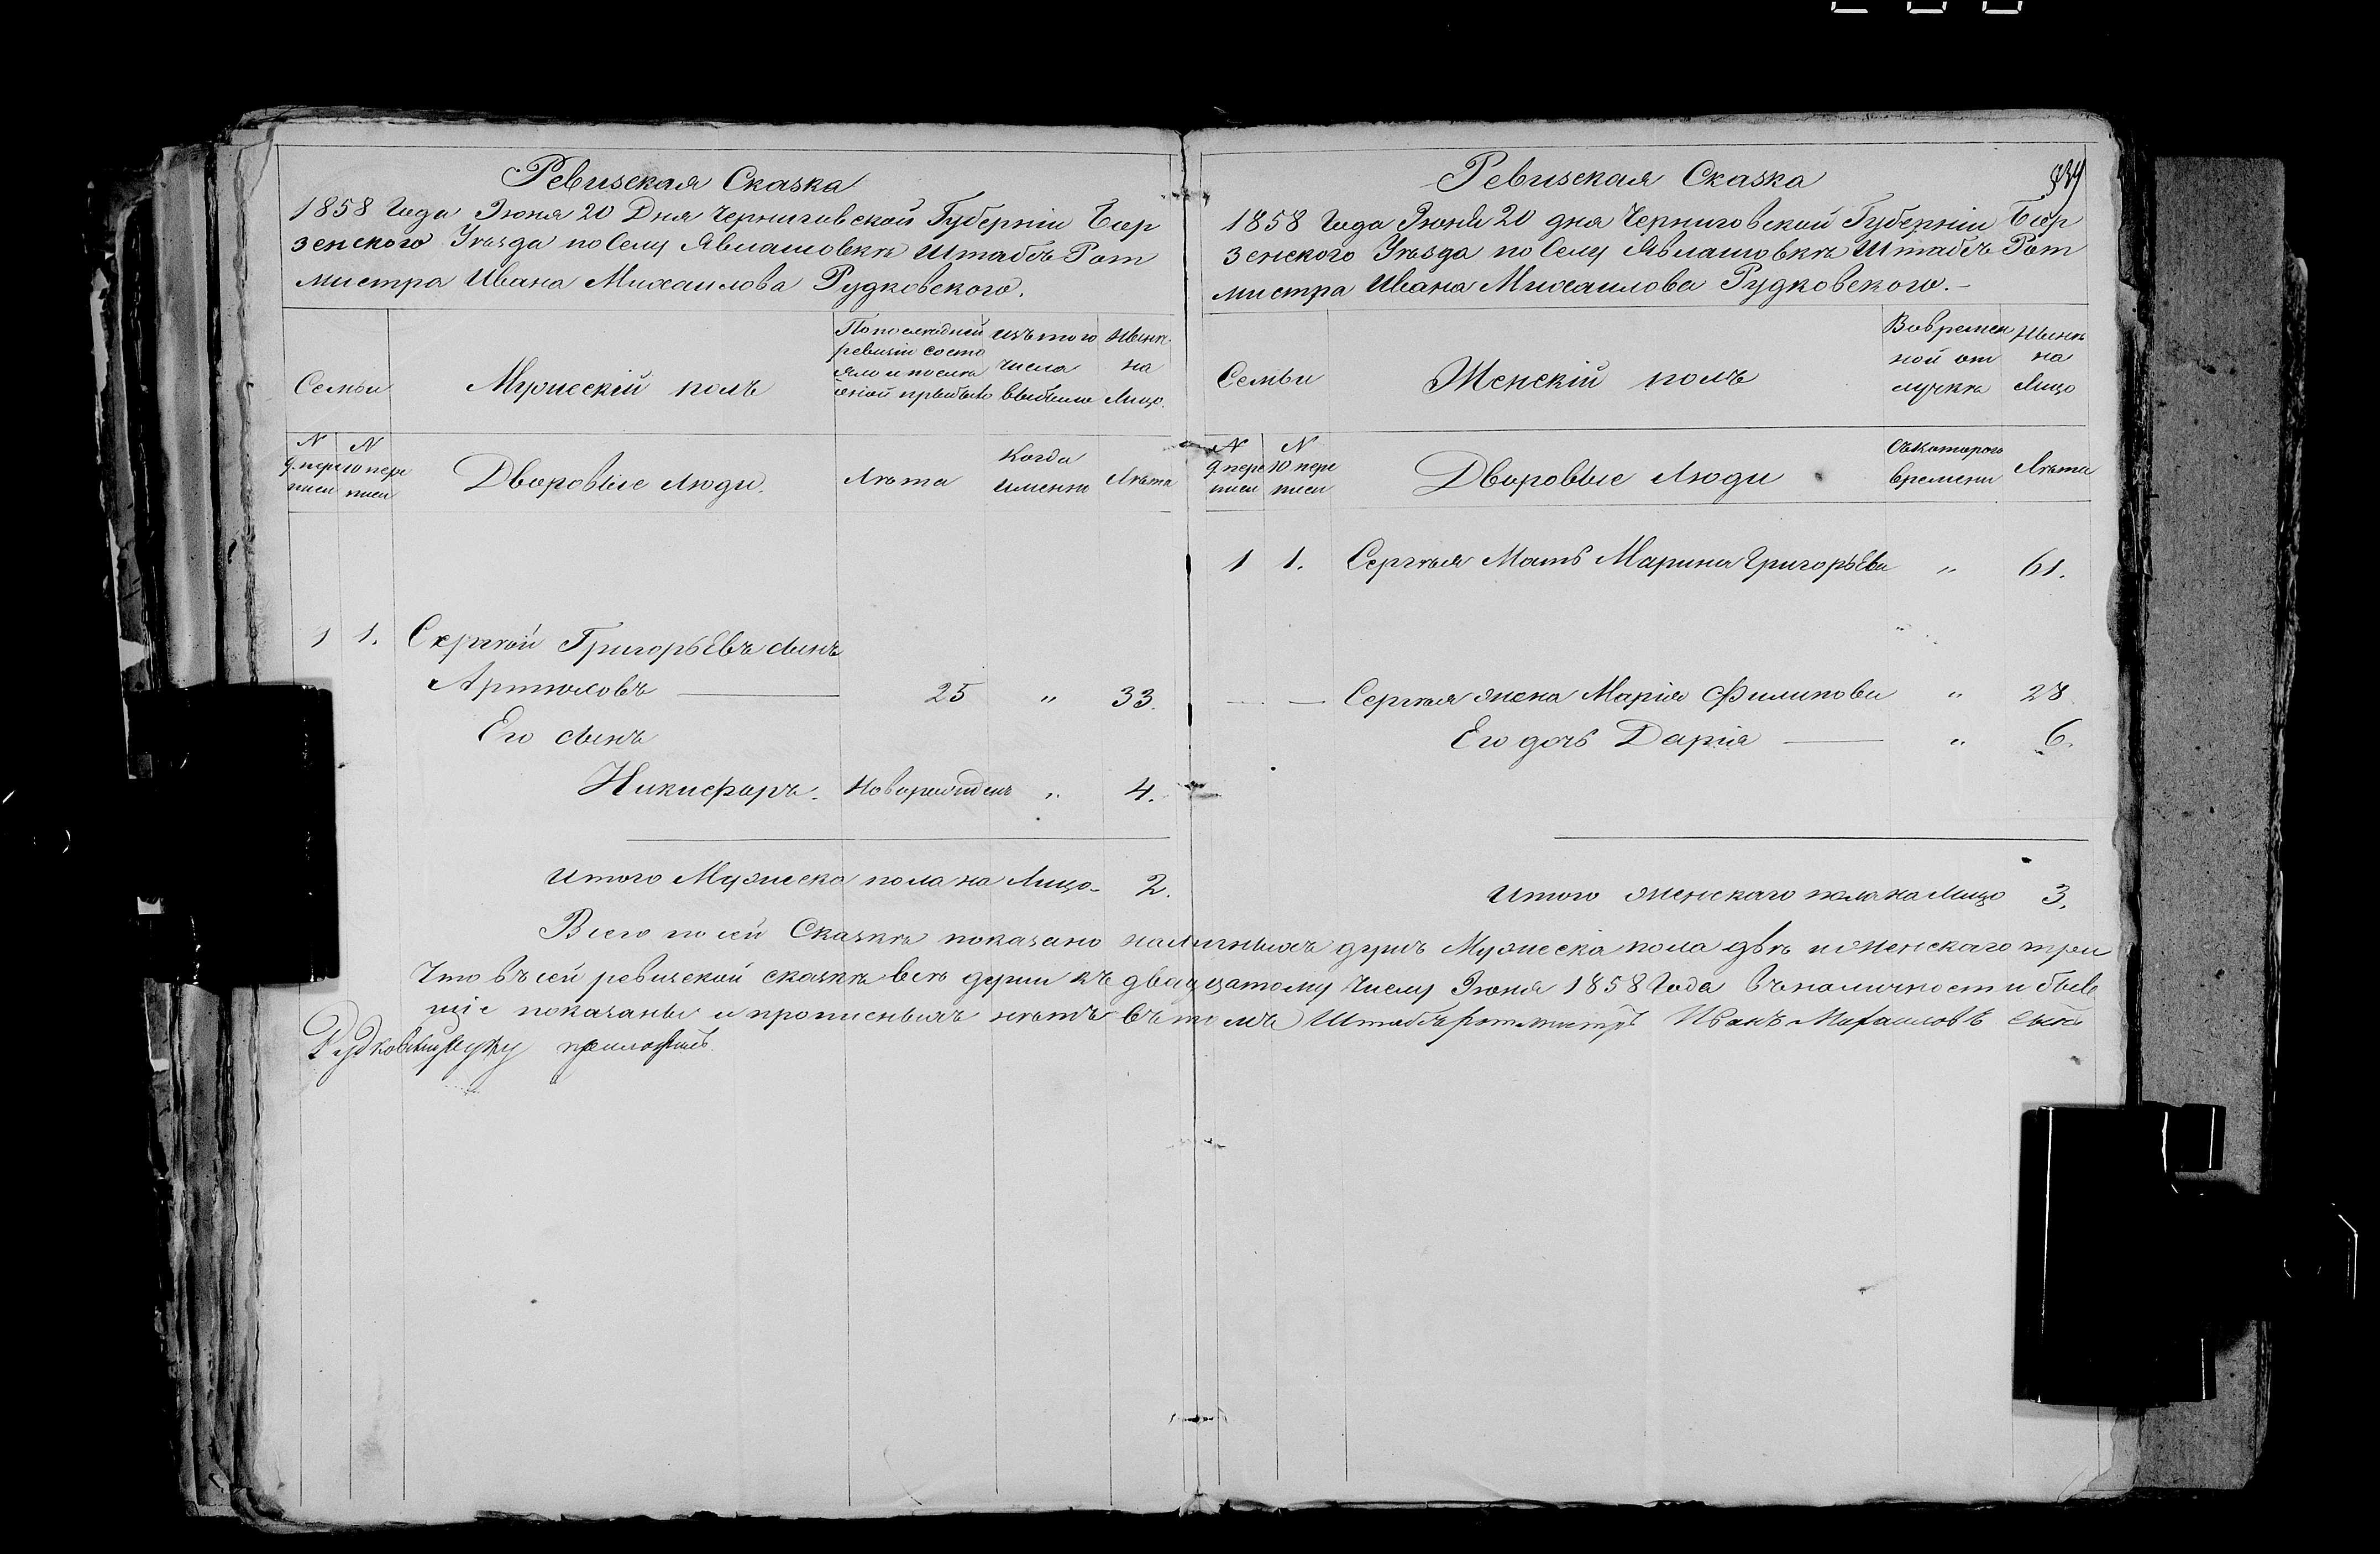 Ревизская Сказка
1858 Года Июня 20 Дня Черниговской Губерніи Бор
зенского Уѣзда по Селу Явлашовкѣ Штабъ Рот
мистра Ивана Михаилова Рудковского.
Семьи
Мужескій полъ
По последней
ревизіи состо
яло и после
оной прибыло
изъ того
числа
выбыло
Нынѣ
на
Лицо.
N
9. пере
писи
N
10 пере
писи
Дворовые Люди.
Лѣта
Когда
именно
Лѣта
1 1. Сергѣй Григорьевъ сынъ
25 " 33.
Его сынъ
Никифоръ. Новорожденъ " 4.
Итого Мужеска пола на Лицо 2.
Ревизская Сказка
1858 Года Июня 20 дня Черниговской Губерніи Бор
зенского Уѣзда по Селу Явлашовкѣ Штабъ Рот
мистра Ивана Михаилова Рудковского.
Семьи
Женскій полъ
Во времен
ной от
лучкѣ
Нынѣ
на
Лицо
N
9 пере
писи
N
10 пере
писи
Дворовые Люди
Съ котораго
времени
Лѣта
1 1. Сергѣя Мать Марина Григорьева " 61.
Сергѣя жена Марія Филипова " 28
Его дочь Дарія " 6.
Итого женскаго пола на Лицо 3.
Всего по сей Сказкѣ показано наличныхъ душъ Мужеска пола двѣ и женскаго три
Что въ сей ревизской сказкѣ всѣ души къ двадцатому Числу Июня 1858 Года въ наличности быв
шіе показаны и прописныхъ нѣтъ въ томъ Штабъ ротмистръ Иванъ Михаиловъ сынъ
Рудковскій руку приложилъ